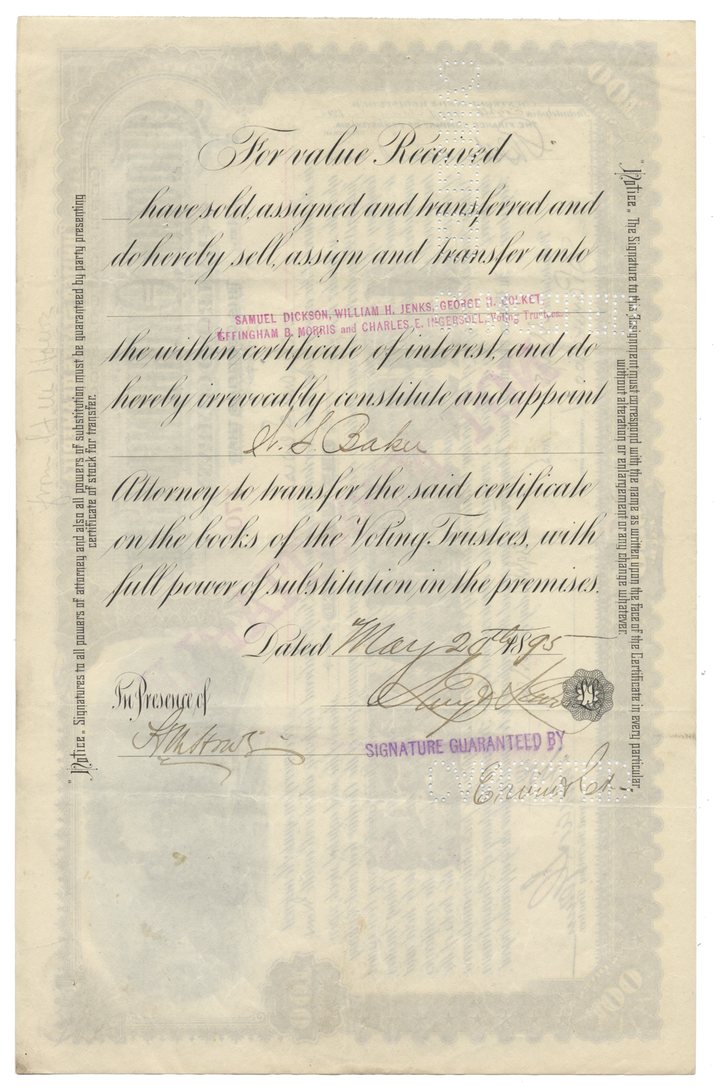 For value Received
have sold, assigned and transferred, and
do hereby sell, assign and transfer unto
SAMUEL DICKSON, WILLIAM H. JENKS, GEORGE H. COLKET,
EFFINGHAM B. MORRIS and CHARLES E. INGERSOLL, Voting Trustees
the within certificate of interest, and do
hereby irrevocably constitute and appoint
W. S. Baker
Attorney to transfer the said certificate
on the books of the Voting Trustees, with
full power of substitution in the premises.
Dated May 20th 1895
In Presence of
SIGNATURE GUARANTEED BY
"Notice." Signatures to all powers of attorney and also all powers of substitution must be guaranteed by party presenting
certificate of stock for transfer.
"Notice." The Signature to this Assignment must correspond with the name as written upon the face of the Certificate in every particular,
without alteration or enlargement or any change whatever.